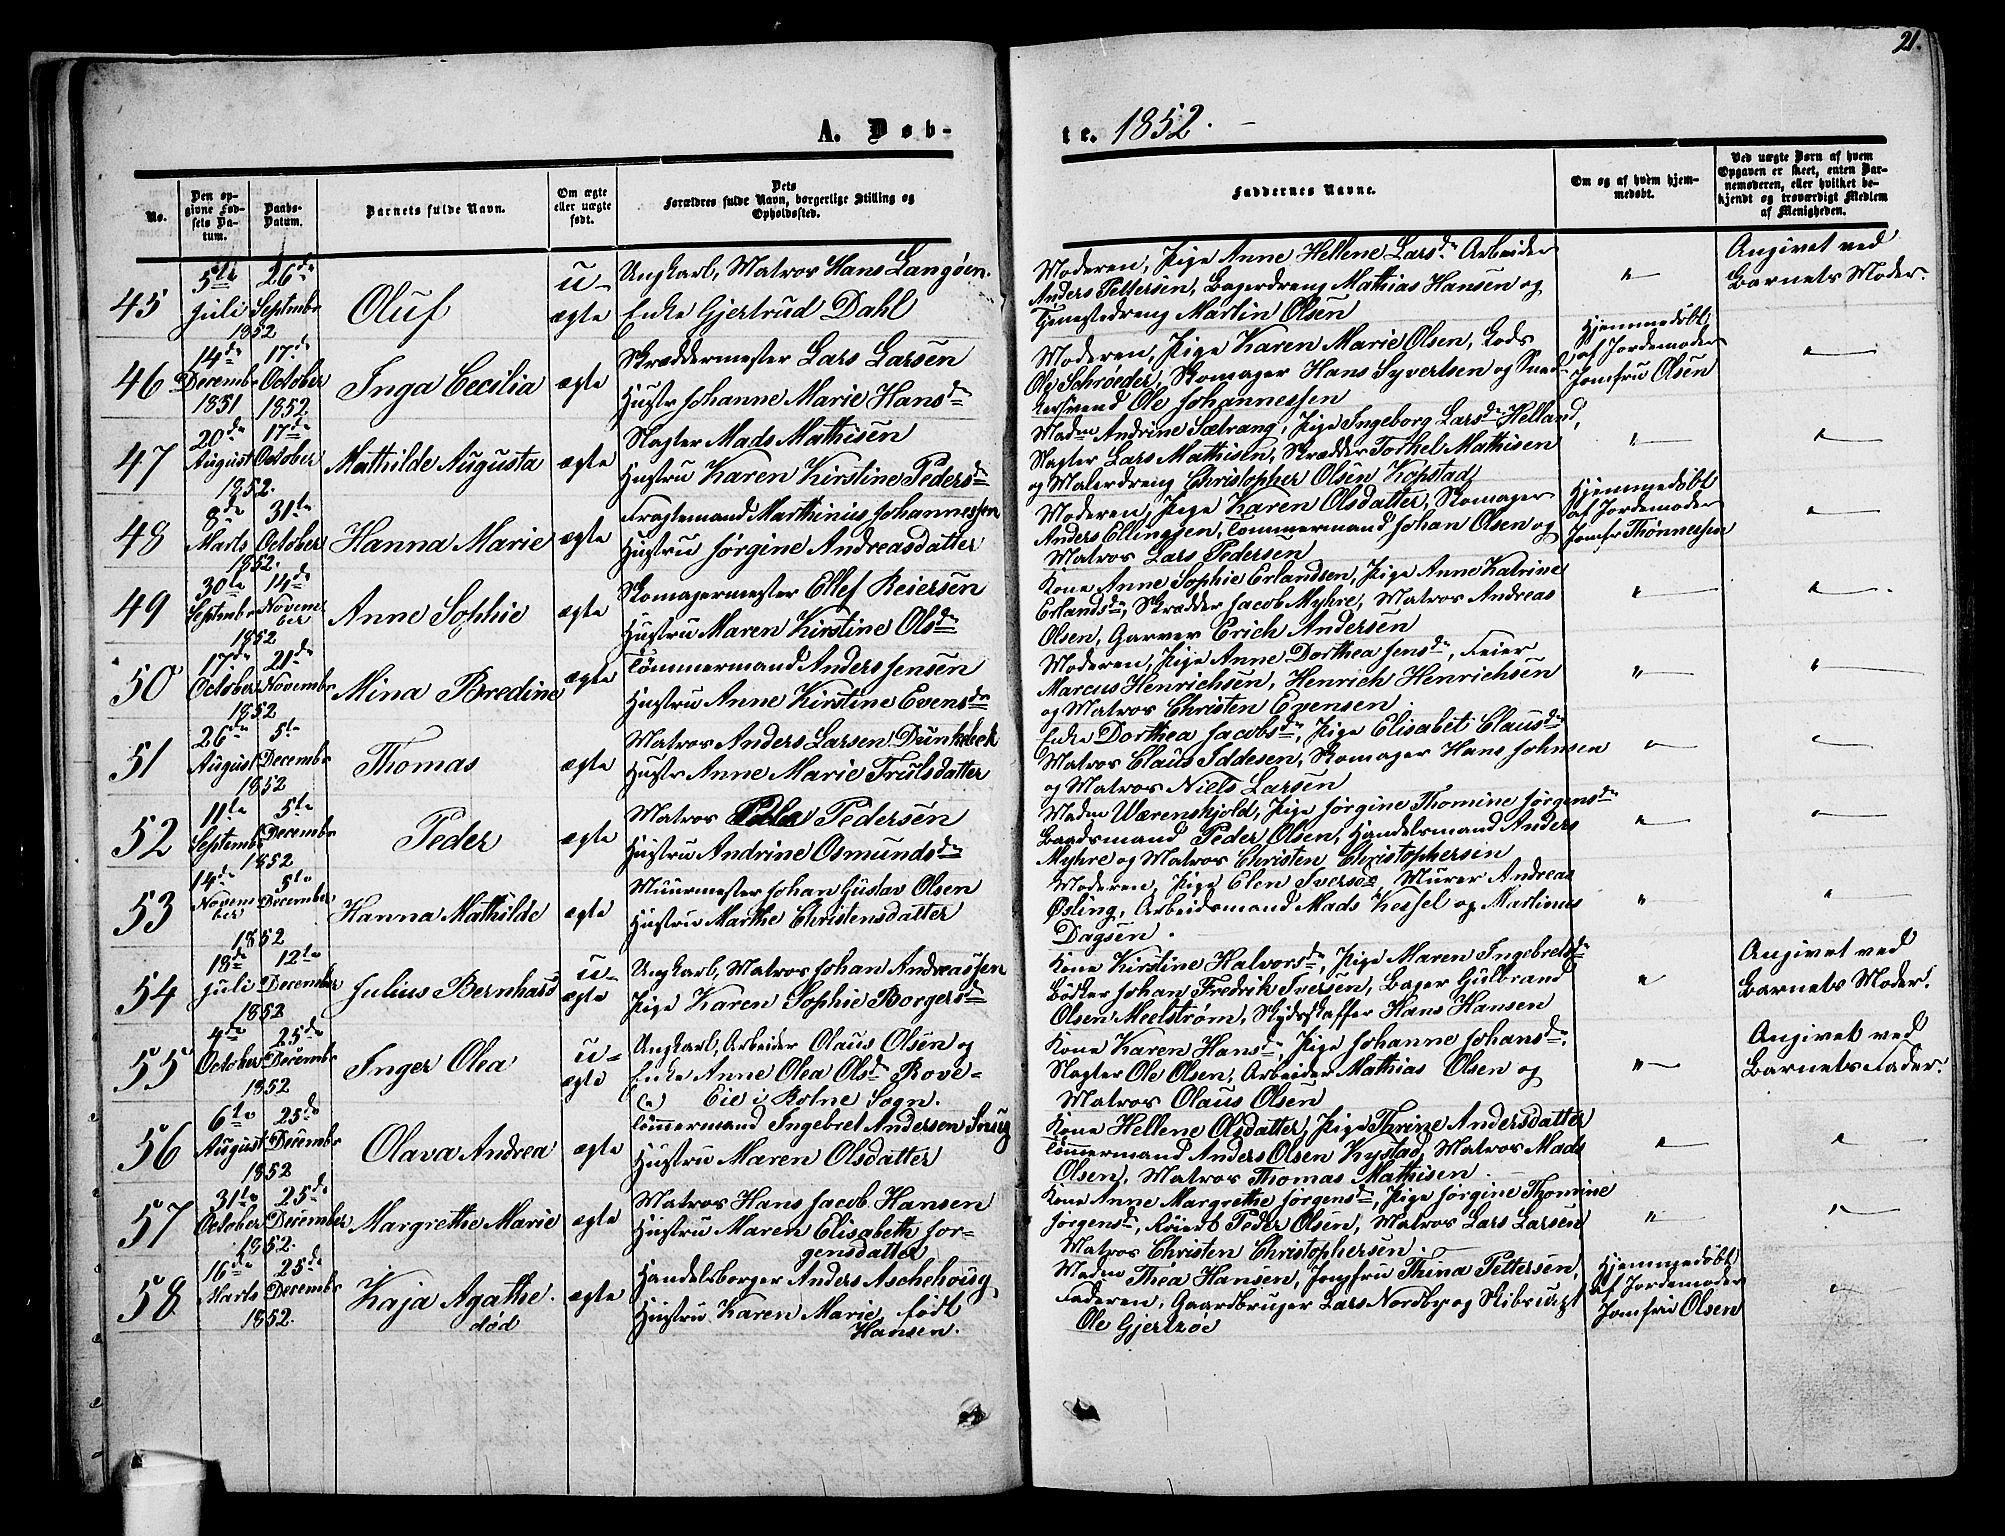 21.
A. Døb-
te. 1852.
No.
Den op-
givne Fød-
sels Da-
tum.
Daabs-
Datum.
Barnets fulde Navn.
Om ægte
eller uægte
født.
Dets
Forældres fulde Navn, borgerlige Stilling og
Opholdssted.
Faddernes Navne.
Om og af hvem hjem-
medøbt.
Ved uægte Børn af hvem
Opgaven er skeet, enten Bar-
nemoderen, eller hvilket be-
kjendt og troværdigt Medlem
af Menigheden.
45
5te
Juli
26de
Septembr
1852
Oluf
u-
ægte
Ungkarl, Matros Hans Langöen.
Enke Gjertrud Dahl
Moderen, Pige Anne Hellene Larsdn Arbeider
Anders Pettersen, Bagerdreng Mathias Hansen og
Tjenestedreng Martin Olsen
"
Angivet ved
Barnets Moder.
46
14de
Decembr
1851
17de
October
1852.
Inga Cecilia
ægte
Skræddermester Lars Larsen
Hustr Johanne Marie Hansdn
Moderen, Pige Karen Marie Olsen, Gods
Ole Schrøeder, Skomager Hans Syvertsen og Sned-
kersvend Ole Johannessen
Hjemmedöbt
af Jordemoder
Jomfru Olsen
"
47
20de
August
17de
October
1852.
Mathilde Augusta
ægte
Slagter Mads Mathisen
Hustru Karen Kirstine Pedersdn
Madm Andrine Sætrang, Pige Ingeborg Larsdn Helland,
Slagter Lars Mathisen, Skrædder Torkel Mathisen
og Malerdreng Christopher Olsen Kopstad
"
"
48
8de
Marts
31te
October
1852.
Hanna Marie
ægte
Fragtemand Marthinius Johannessen
Hustru Jörgine Andreasdatter
Moderen, Pige Karen Olsdatter, Skomager
Anders Ellingsen, Tömmermand Johan Olsen og
Matros Lars Pedersen
Hjemmedöbt
af Jordemoder
Jomfr Thönnessen
"
49
30te
Septembr
14de
Novem
ber
1852
Anne Sophie
ægte
Skomagermester Ellef Reiersen
Hustru Maren Kirstine Olsdn
Kone Anne Sophie Erlandsen, Pige Anne Katrine
Erlandsdn, Skrædder Jacob Myhre, Matros Andreas
Olsen, Garver Erich Andersen
"
"
50
17de
October
21de
Novembr
1852
Mina Bredine
ægte
Tömmermand Anders Jensen
Hustru Anne Kirstine Evensdn
Moderen, Pige Anne Dorthea Jensdn, Feier
Marcus Henrichsen, Henrich Henrichsen
og Matros Christen Evensen.
"
"
51
26de
August
5te
Decembr
1852
Thomas
ægte
Matros Anders Larsen Dunkebek
Hustr Anne Marie Trulsdatter
Enke Dorthea Jacobsdn, Pige Elisabet Clausdn
Matros Claus Iddesen, Skomager Hans Johnsen
og Matros Niels Larsen
"
"
52
11te
Septemb
5te
Decembr
1852
Peder
ægte
Matros Pedersen
Hustru Andrine Osmundsdn
Madm Wærenskjold, Pige Jörgine Thomine Jörgensdn
Baadsmand Peder Olsen, Handelsmand Anders
Myhre og Matros Christen Christophersen
"
"
53
14de
Novem
ber
5te
December
1852
Hanna Mathilde
ægte
Muurmester Johan Gustav Olsen
Hustru Marthe Christensdatter
Moderen, Pige Elen Iversdn, Murer Andreas
Øsling, Arbeidsmand Mads Kessel og Martinus
Dagsen.
"
"
54
18de
Juli
12te
December
1852
Julius Bernhard
u-
ægte
Ungkarl, Matros Johan Andreassen
Pige Karen Sophie Borgersdn
Kone Kirstine Halvorsdn, Pige Maren Ingebretsdn
Bödker Johan Fredrik Iversen, Bager Gulbrand
Olsen Meelström, Skydsskaffer Hans Hansen
"
Angivet ved
Barnets Moder.
55
4de
October
25de
Decembr
1852
Inger Olea
u-
ægte
Ungkarl, Arbeider Olaus Olsen og
Enke Anne Olea Olsdn Rove-
Eie i Botne Sogn.
Kone Karen Hansdn, Pige Johanne Johansdn.
Slagter Ole Olsen, Arbeider Mathias Olsen og
Matros Olaus Olsen
"
Angivet ved
Barnets Fader.
56
6te
August
25de
Decembr
1852
Olava Andrea
ægte
Tömmermand Ingebret Andersen Snug
Hustru Maren Olsdatter
Kone Hellene Olsdatter, Pige Thrine Andersdatter
Tömmermand Anders Olsen Kystad, Matros Mads
Olsen, Matros Thomas Mathisen.
"
"
57
31te
October
25de
December
1852.
Margrethe Marie
ægte
Matros Hans Jacob Hansen
Hustru Maren Elisabeth Jör-
gensdatter
Kone Anne Margrethe Jörgensdn, Pige Jörgine Thomine
Jörgensdn, Röiert Peder Olsen, Matros Lars Larsen
Matros Christen Christophersen.
"
"
58
16de
Marts
25de
Decembr
1852.
Kaja Agathe.
död
ægte
Handelsborger Anders Aschehoug,
Hustru Karen Marie, født
Hansen.
Madm Thea Hansen, Jomfru Thina Pettersen,
Faderen, Gaardbruger Lars Nordby og Skibsrigt
Ole Gjertsöe
Hjemmedöbt
af Jordemoder
Jomfru Olsen
"